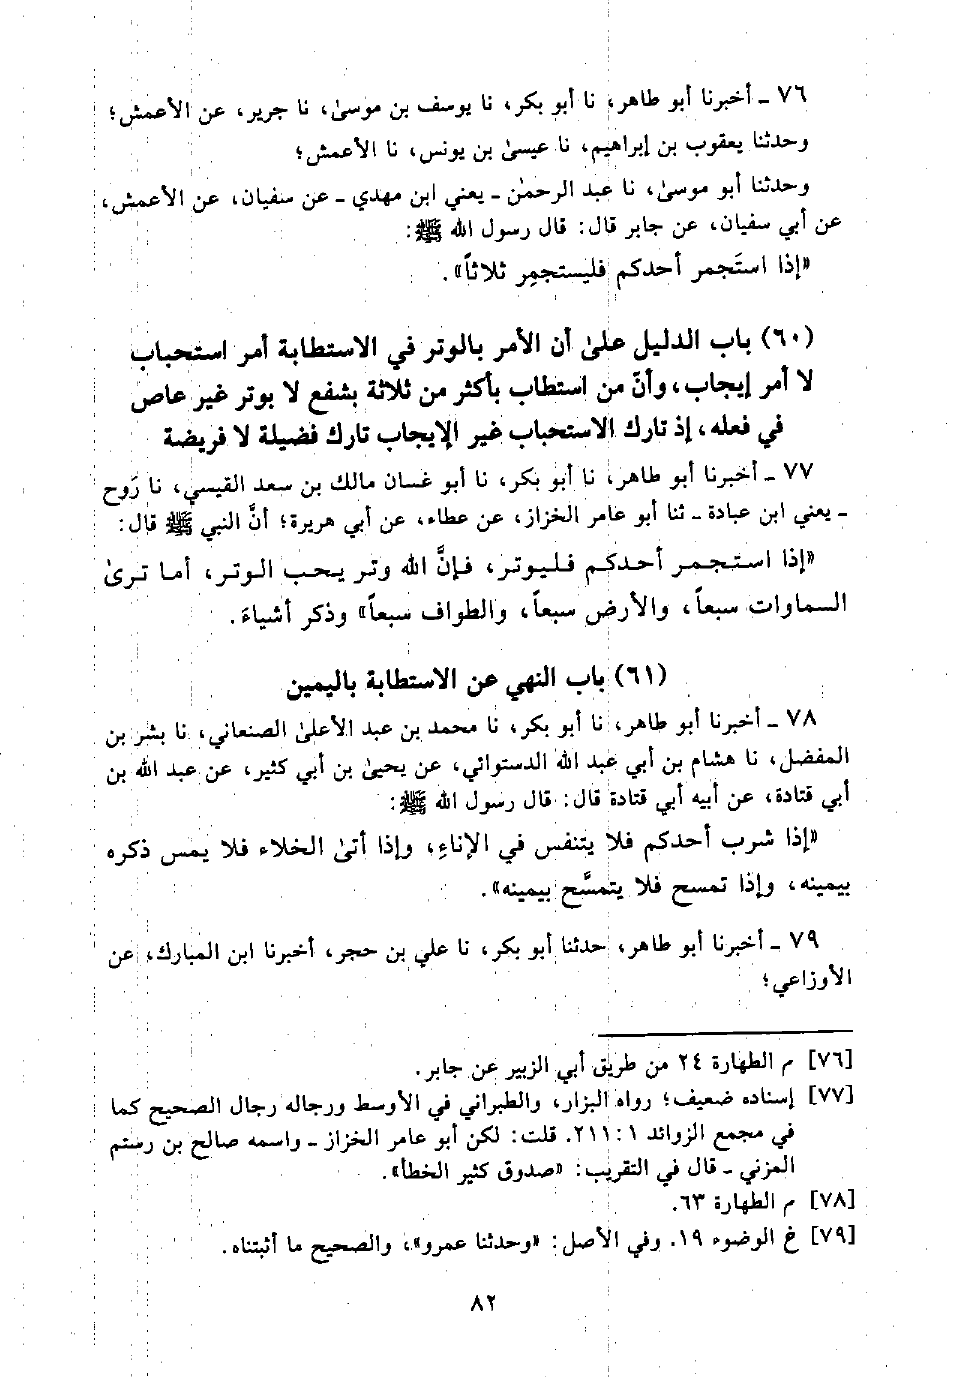 ٧٦ ـ أخبرنا أبو طاهر، نا أبو بكر، نا يوسف بن موسىٰ، نا جرير، عن الأعمش؛
وحدثنا يعقوب بن إبراهيم، نا عيسىٰ بن يونس، نا الأعمش؛
وحدثنا أبو موسىٰ، نا عبد الرحمٰن ـ يعني ابن مهدي ـ عن سفيان، عن الأعمش،
عن أبي سفيان، عن جابر قال: قال رسول الله ﷺ:
«إذا استَجمر أحدكم فليستجمِر ثلاثاً».
(٦٠) باب الدليل علىٰ أن الأمر بالوتر في الاستطابة أمر استحباب
لا أمر إيجاب، وأنّ من استطاب بأكثر من ثلاثة بشفع لا بوتر غير عاص
في فعله، إذ تارك الاستحباب غير الإيجاب تارك فضيلة لا فريضة
٧٧ ـ أخبرنا أبو طاهر، نا أبو بكر، نا أبو غسان مالك بن سعد القيسي، نا رَوح
ـ يعني ابن عبادة ـ ثنا أبو عامر الخزاز، عن عطاء، عن أبي هريرة؛ أنَّ النبي ﷺ قال:
«إذا استجمر أحدكم فليوتر، فإنَّ الله وتر يحب الوتر، أما ترىٰ
السماوات سبعاً، والأرض سبعاً، والطواف سبعاً» وذكر أشياءَ.
(٦١) باب النهي عن الاستطابة باليمين
٧٨ ـ أخبرنا أبو طاهر، نا أبو بكر، نا محمد بن عبد الأعلىٰ الصنعاني، نا بشر بن
المفضل، نا هشام بن أبي عبد الله الدستوائي، عن يحيىٰ بن أبي كثير، عن عبد الله بن
أبي قتادة، عن أبيه أبي قتادة قال: قال رسول الله ﷺ:
«إذا شرب أحدكم فلا يتنفس في الإناءِ، وإذا أتىٰ الخلاء فلا يمس ذكره
بيمينه، وإذا تمسح فلا يتمسَّح بيمينه».
٧٩ ـ أخبرنا أبو طاهر، حدثنا أبو بكر، نا علي بن حجر، أخبرنا ابن المبارك، عن
الأوزاعي؛
[٧٦] م الطهارة ٢٤ من طريق أبي الزبير عن جابر.
[٧٧] إسناده ضعيف؛ رواه البزار، والطبراني في الأوسط ورجاله رجال الصحيح كما
في مجمع الزوائد ١ : ٢١١. قلت: لكن أبو عامر الخزاز ـ واسمه صالح بن رستم
المزني ـ قال في التقريب: «صدوق كثير الخطأ».
[٧٨] م الطهارة ٦٣.
[٧٩] خ الوضوء ١٩. وفي الأصل: «وحدثنا عمرو»، والصحيح ما أثبتناه.
٨٢